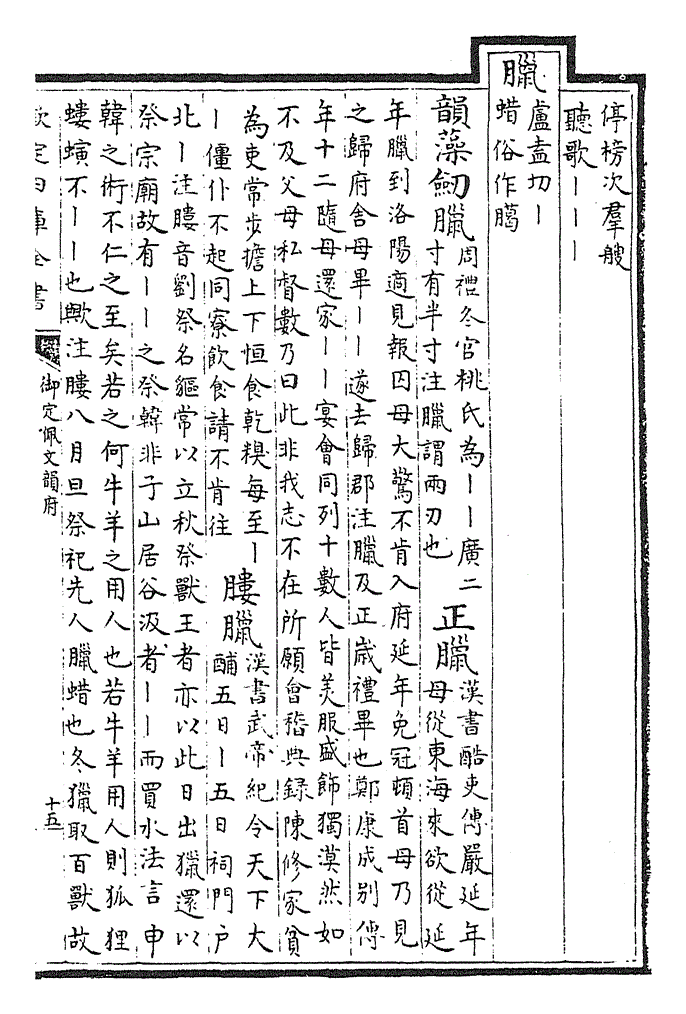 停榜次羣艘
聽歌丨丨丨
臘
盧盍切丨
蜡俗作臈
韻藻劒臘
周禮冬官桃氏為丨丨廣二
寸有半寸注臘謂兩刃也
正臘
漢書酷吏傳嚴延年
母從東海來欲從延
年臘到洛陽適見報囚母大驚不肯入府延年免冠頓首母乃見
之歸府舍母畢丨丨遂去歸郡注臘及正歲禮畢也鄭康成別傳
年十二隨母還家丨丨宴會同列十數人皆美服盛飾獨漠然如
不及父母私督數乃曰此非我志不在所願會稽典錄陳修家貧
為吏常步擔上下恒食乾糗每至丨
丨僵仆不起同寮飲食請不肯往
膢臘
漢書武帝紀令天下大
酺五日丨五日祠門戶
北丨注膢音劉祭名貙常以立秋祭獸王者亦以此日出獵還以
祭宗廟故有丨丨之祭韓非子山居谷汲者丨丨而買水法言申
韓之術不仁之至矣若之何牛羊之用人也若牛羊用人則狐狸
螻螾不丨丨也歟注膢八月旦祭祀先人臘蜡也冬獵取百獸故
欽定四庫全書
御定佩文韻府
十五